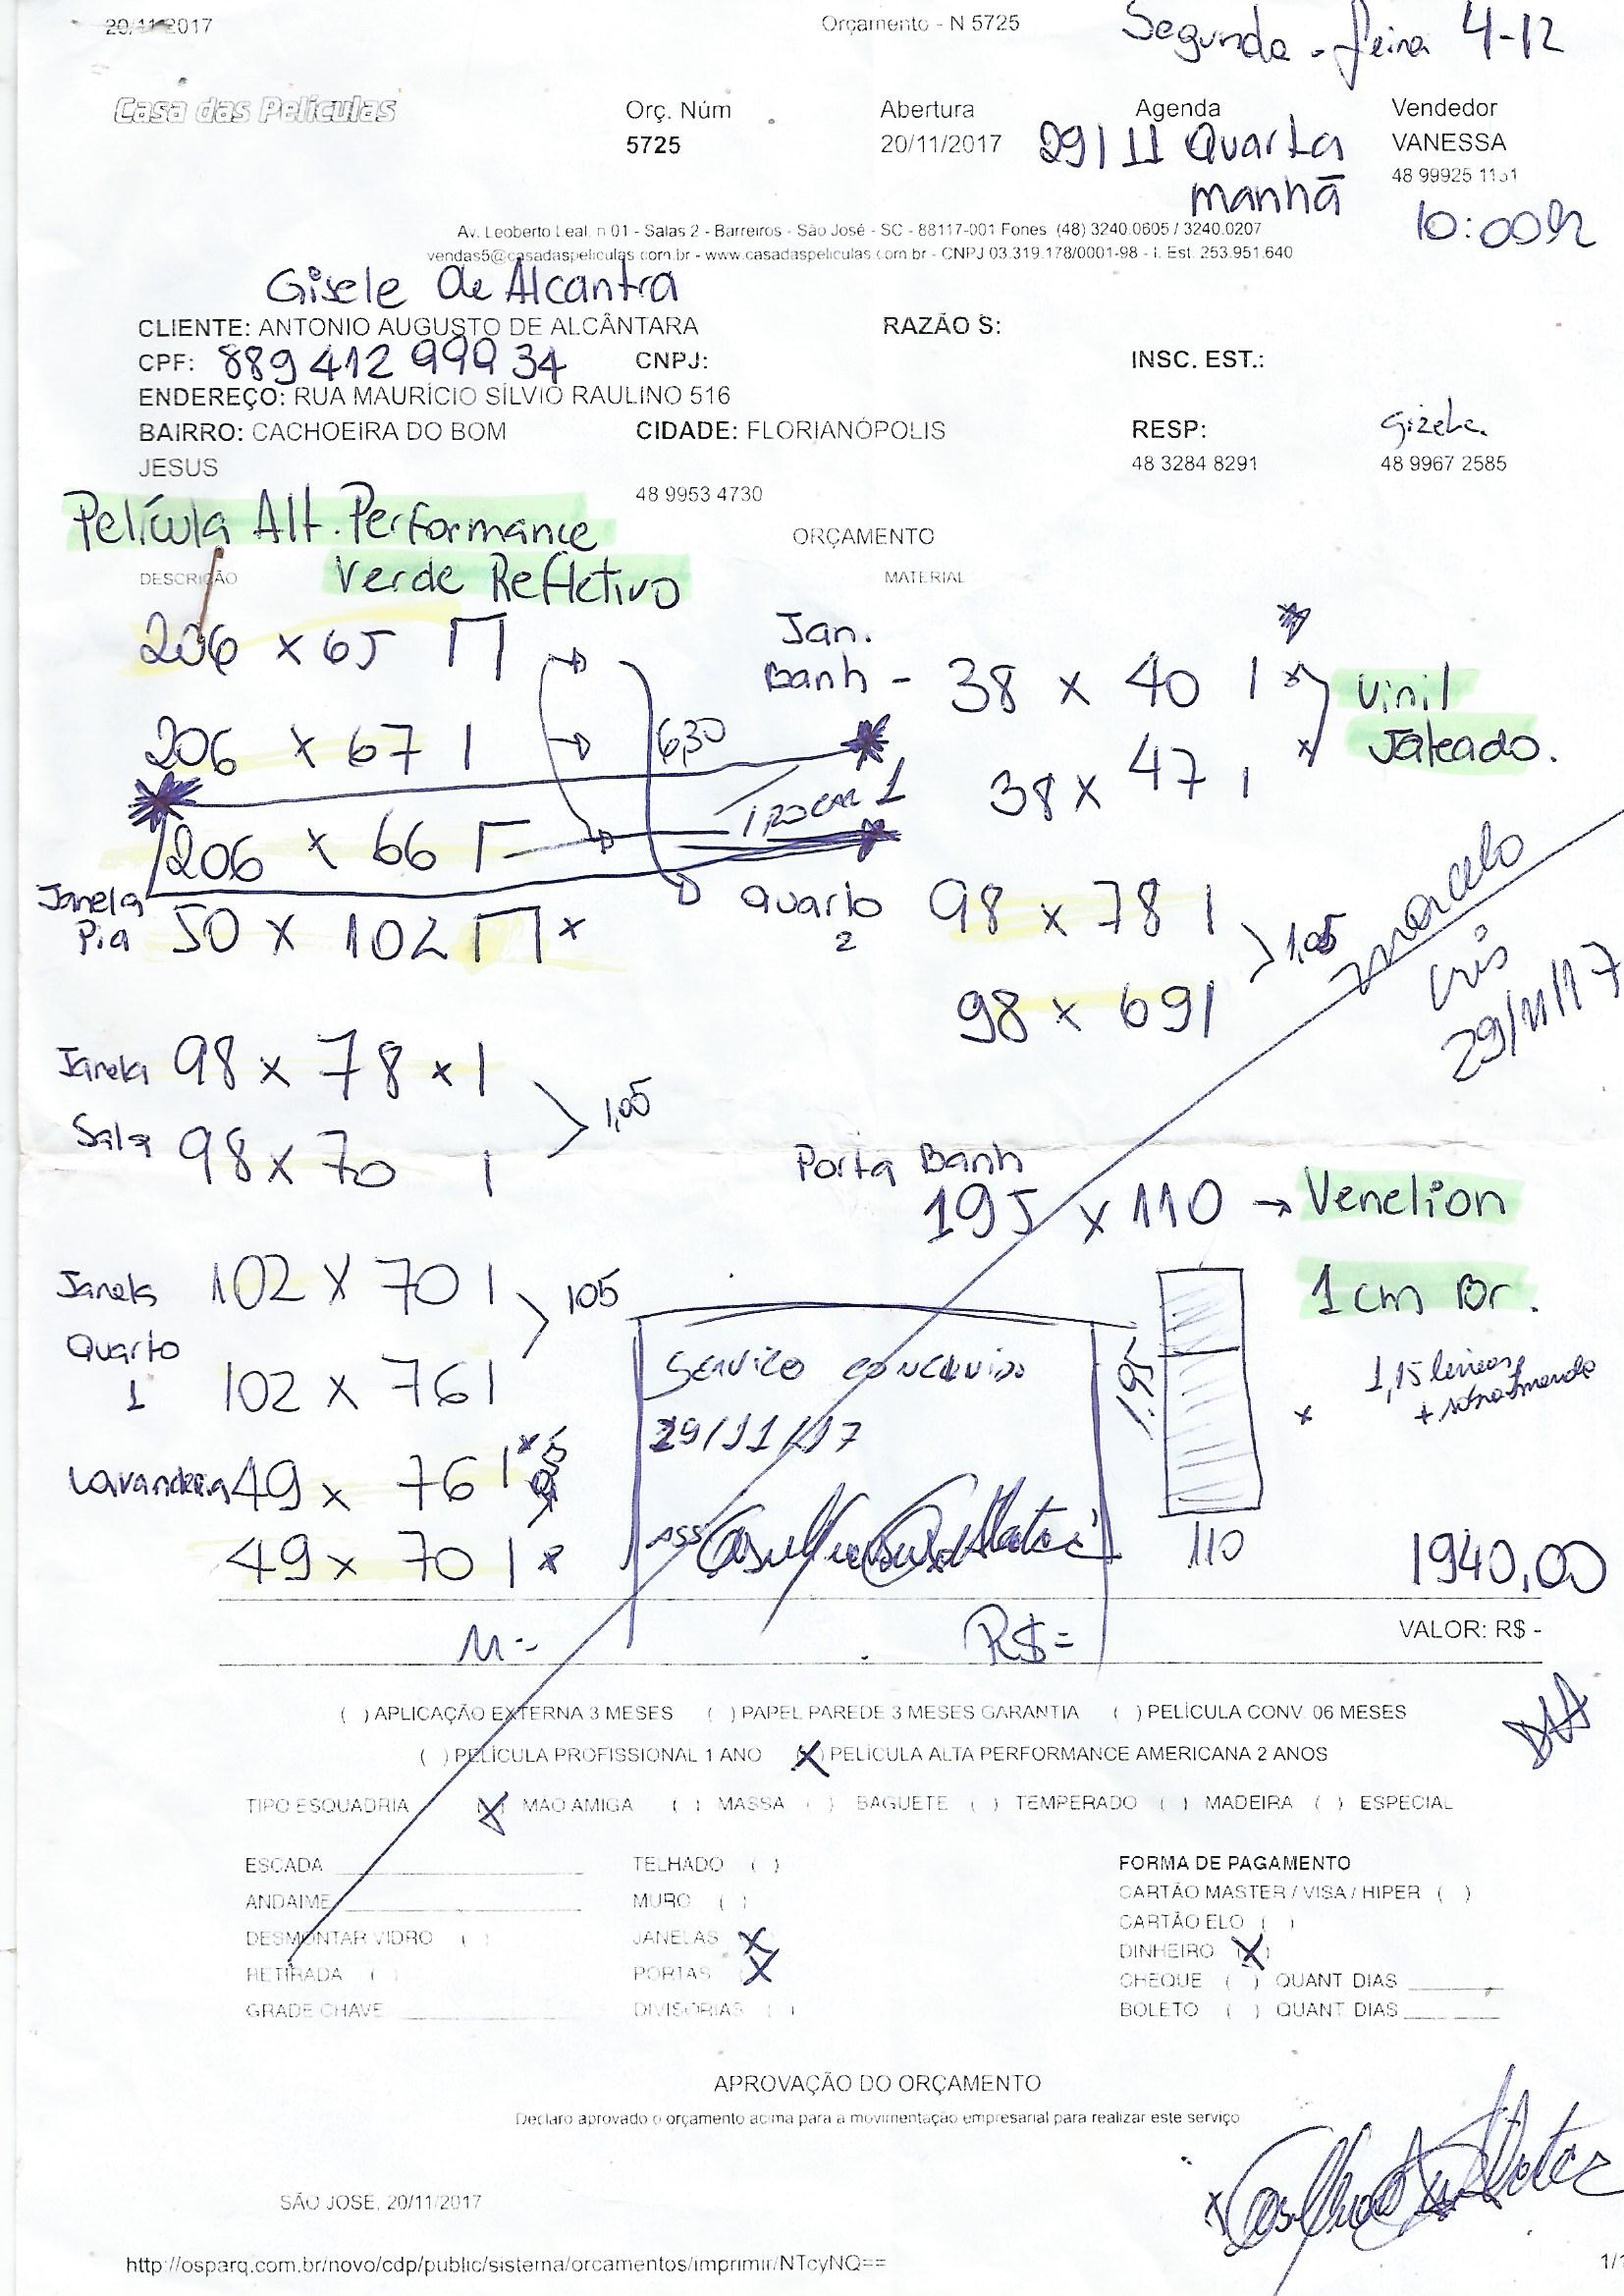 20/11/2017
Orçamento - N 5725
Segunda - feira 4-12
Casa das Películas
Orç. Núm
Abertura
Agenda
Vendedor
5725
20/11/2017
29/11 Quarta
manhã
VANESSA
48 99925 1151
10:00h
Av. Leoberto Leal, n 01 - Salas 2 - Barreiros - São José - SC - 88117-001 Fones (48) 3240.0605 / 3240.0207
vendas5@casadaspeliculas.com.br - www.casadaspeliculas.com.br - CNPJ 03.319.178/0001-98 - I. Est. 253.951.640
Gisele de Alcantra
CLIENTE: ANTONIO AUGUSTO DE ALCÂNTARA
RAZÃO S:
CPF: 889 412 999 34
CNPJ:
INSC. EST.:
ENDEREÇO: RUA MAURÍCIO SÍLVIO RAULINO 516
BAIRRO: CACHOEIRA DO BOM
JESUS
CIDADE: FLORIANÓPOLIS
RESP:
Gizele.
48 3284 8291
48 9967 2585
48 9953 4730
Película Alt. Performance
Verde Refletivo
ORÇAMENTO
DESCRIÇÃO
MATERIAL
206 x 65
206 x 67 1
6,30
206 x 66
Trocar 1
Janela
Pia 50 x 102 x
Jan.
Banh - 38 x 40 1 x
38 x 47 1 x
Vinil
Jateado.
Quarto
2
98 x 78 1
98 x 69 1
1,05
Marcelo
Cris
29/11/17
Janela 98 x 78 x 1
Sala 98 x 70 1
1,05
Porta Banh
195 x 110 → Venelion
1 cm Br.
Janela
Quarto
1
102 x 70 1
102 x 76 1
105
1,95
110
x
Lavanderia 49 x 76 1 x
49 x 70 1 x
Serviço concluído
29/11/17
ASS
1940,00
M =
R$ =
VALOR: R$ -
( ) APLICAÇÃO EXTERNA 3 MESES ( ) PAPEL PAREDE 3 MESES GARANTIA ( ) PELÍCULA CONV. 06 MESES
( ) PELÍCULA PROFISSIONAL 1 ANO (X) PELÍCULA ALTA PERFORMANCE AMERICANA 2 ANOS
TIPO ESQUADRIA (X) MÃO AMIGA ( ) MASSA ( ) BAGUETE ( ) TEMPERADO ( ) MADEIRA ( ) ESPECIAL
ESCADA
ANDAIME
DESMONTAR VIDRO ( )
RETIRADA ( )
GRADE CHAVE
TELHADO ( )
MURO ( )
JANELAS (X)
PORTAS (X)
DIVISÓRIAS ( )
FORMA DE PAGAMENTO
CARTÃO MASTER / VISA / HIPER ( )
CARTÃO ELO ( )
DINHEIRO (X)
CHEQUE ( ) QUANT DIAS
BOLETO ( ) QUANT DIAS
APROVAÇÃO DO ORÇAMENTO
Declaro aprovado o orçamento acima para a movimentação empresarial para realizar este serviço
SÃO JOSE, 20/11/2017
http://osparq.com.br/novo/cdp/public/sistema/orcamentos/imprimir/NTcyNQ==
1/1